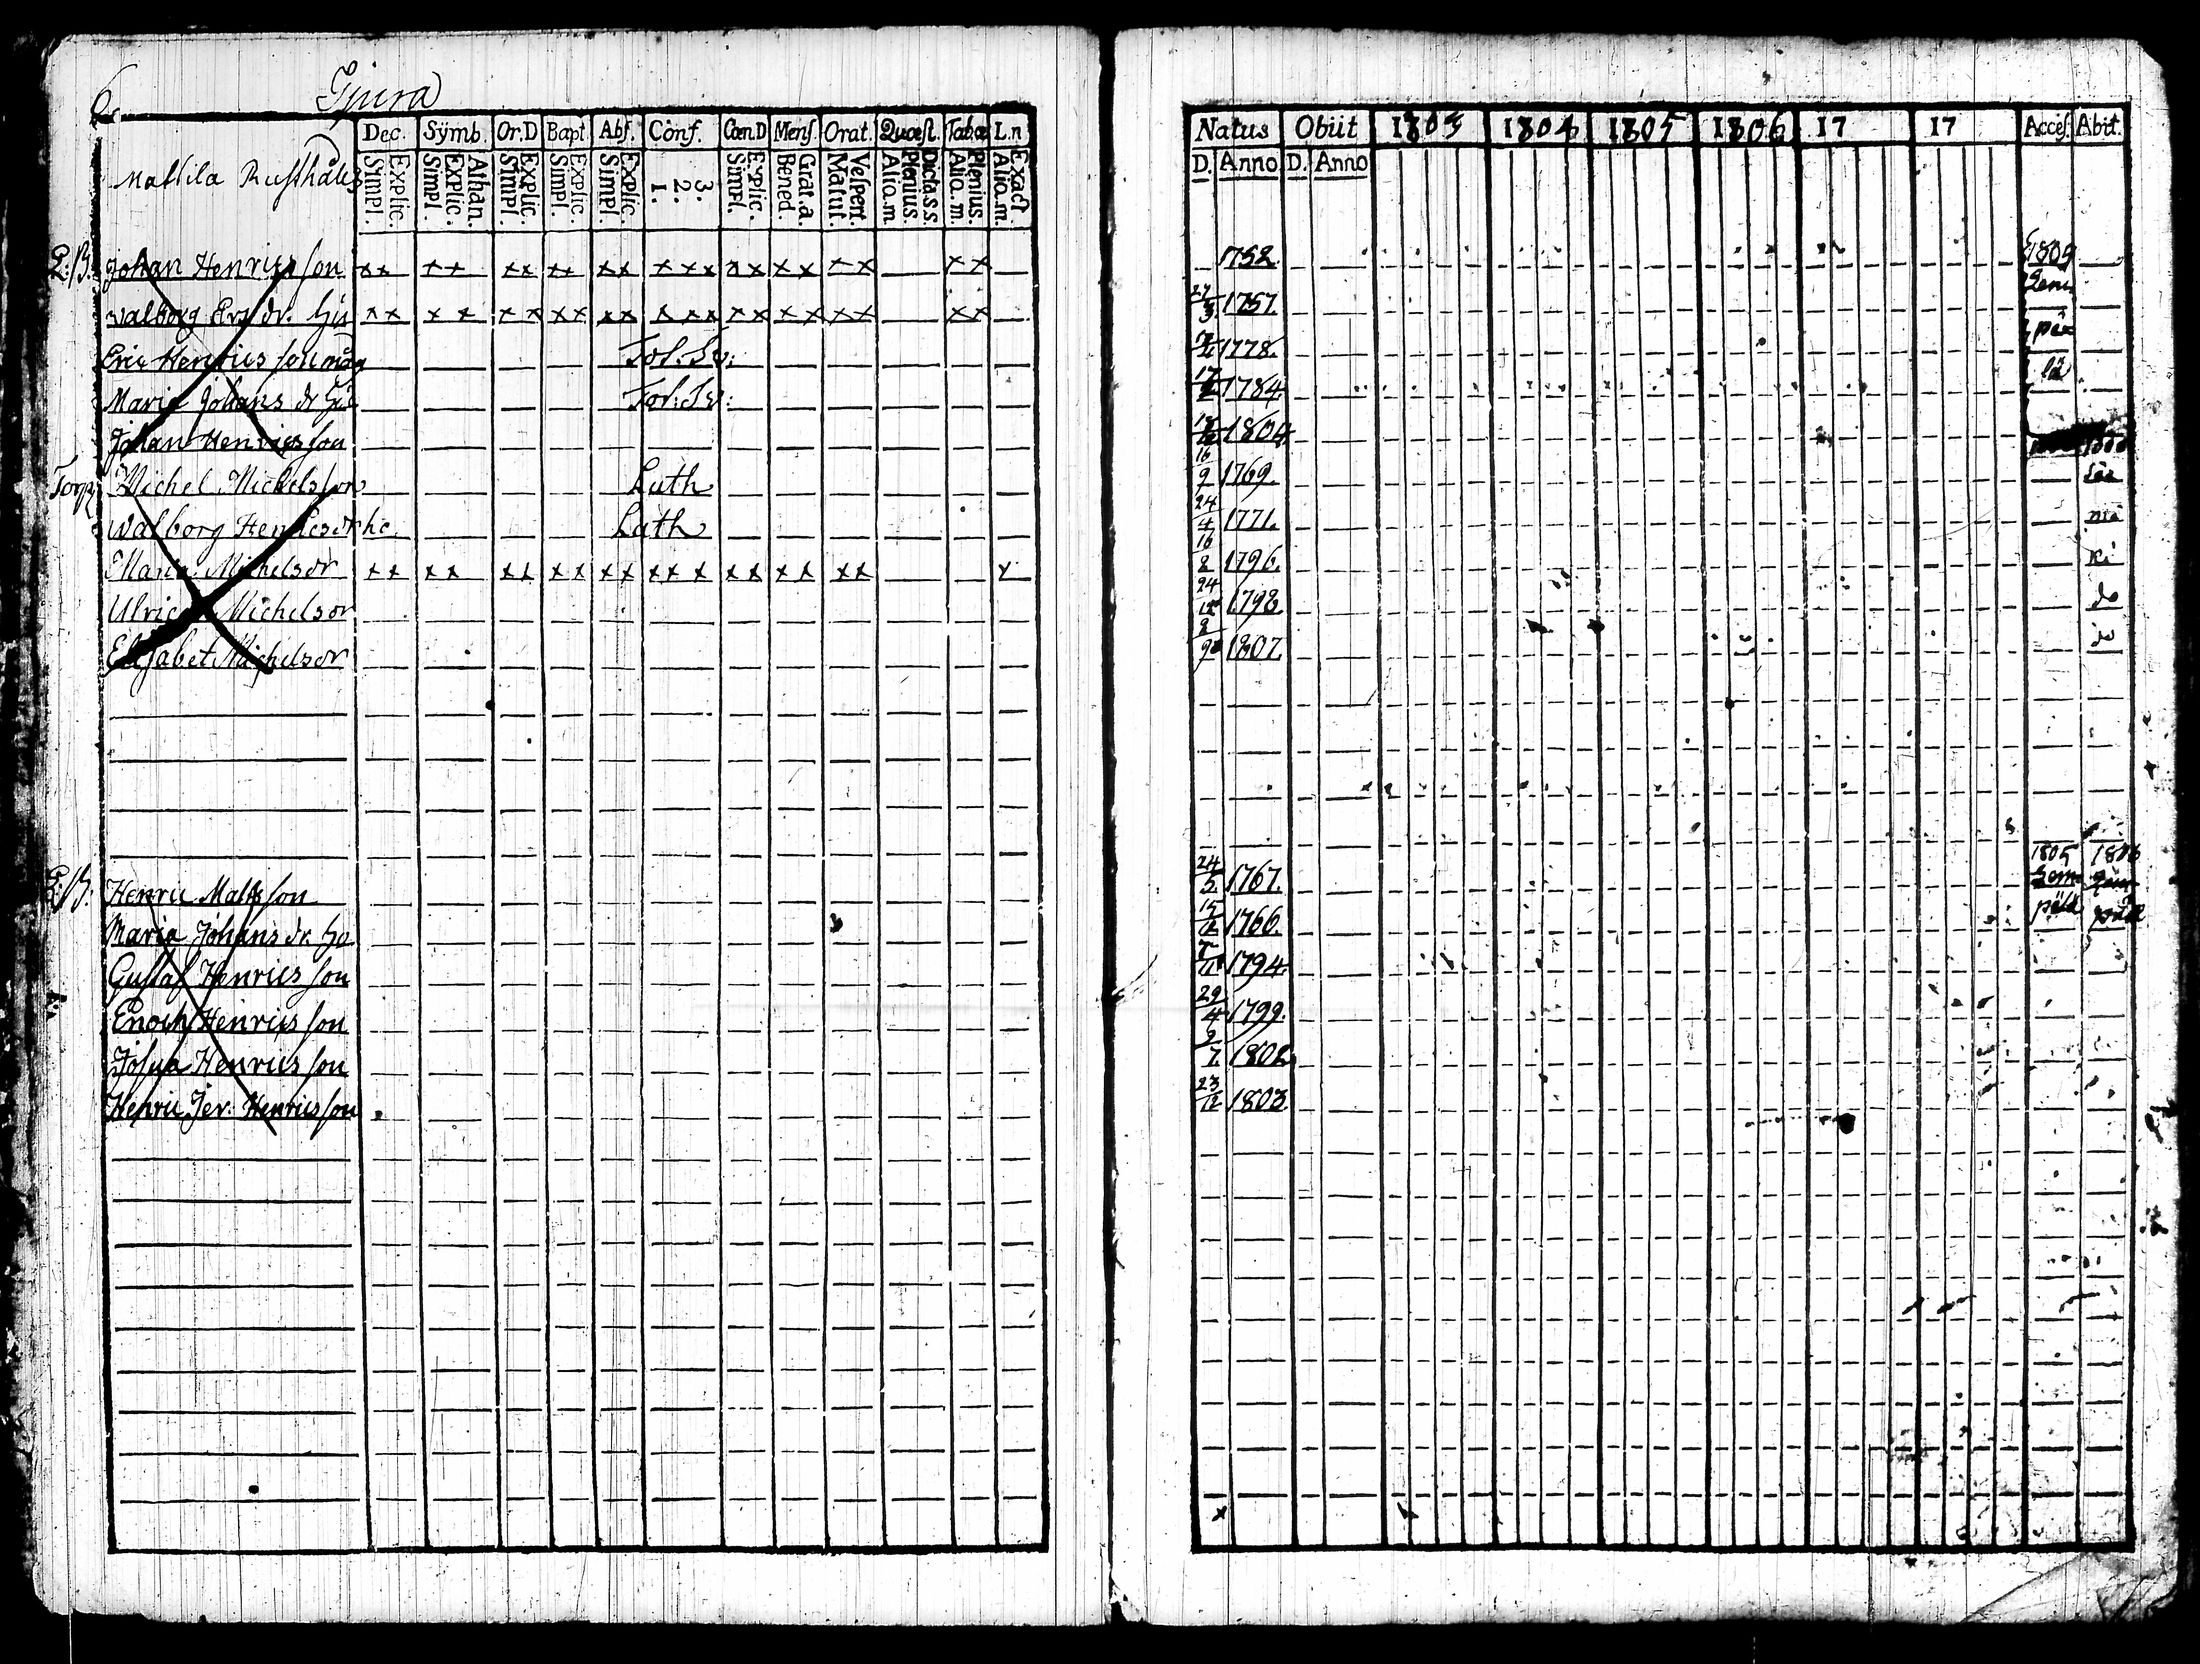 6.
Gjura
Dec. Symb. Or.D Bapt. Abſ. Conf. Cœn.D Menſ. Orat. Quæſt. Tabæ L.n
Mattila Rusthåll
Simpl. Explic. Simpl. Explic. Athan. Simpl. Explic. Simpl. Explic. Simpl. Explic. 1. 2. 3. Simpl. Explic. Bened. Grat.a. Matut. Veſpert. Alia.m. Plenius. Dicta.s.s. Alia.m. Plenius. Alia.m. Exact.
L:B. Johan Henricsson xx xx xx xx xx xxx xx xx xx xx
Walborg Ersdr. Hu xx xx xx xx xx xxx xx xx xx xx
Eric Henricsson måg
Maria Johans dr Hu
Johan Henricsson
Torp Michel Michelsson Luth
Walborg Henricsdr Luth
Maria Michelsdr xx xx xx xx xx xxx xx xx xx x
Ulrica Michelsdr
Elisabet Michelsdr
L:B. Henric Matsson
Maria Johansdr. Hu
Gustaf Henricsson
Enoch Henricsson
Josua Henricsson
Henric Jer. Henricsson
Natus Obiit 1803 1804 1805 1806 17 17 Acceſ. Abit.
D. Anno D. Anno
1752. 1809
27/3 1757.
1778.
17 1784.
1804
16/9 1769.
24/4 1771.
16/8 1796.
24/12 1798
8/9 1807.
24/5 1767. 1805 1806
1766.
1794.
29/4 1799.
9/7 1802.
23/12 1803